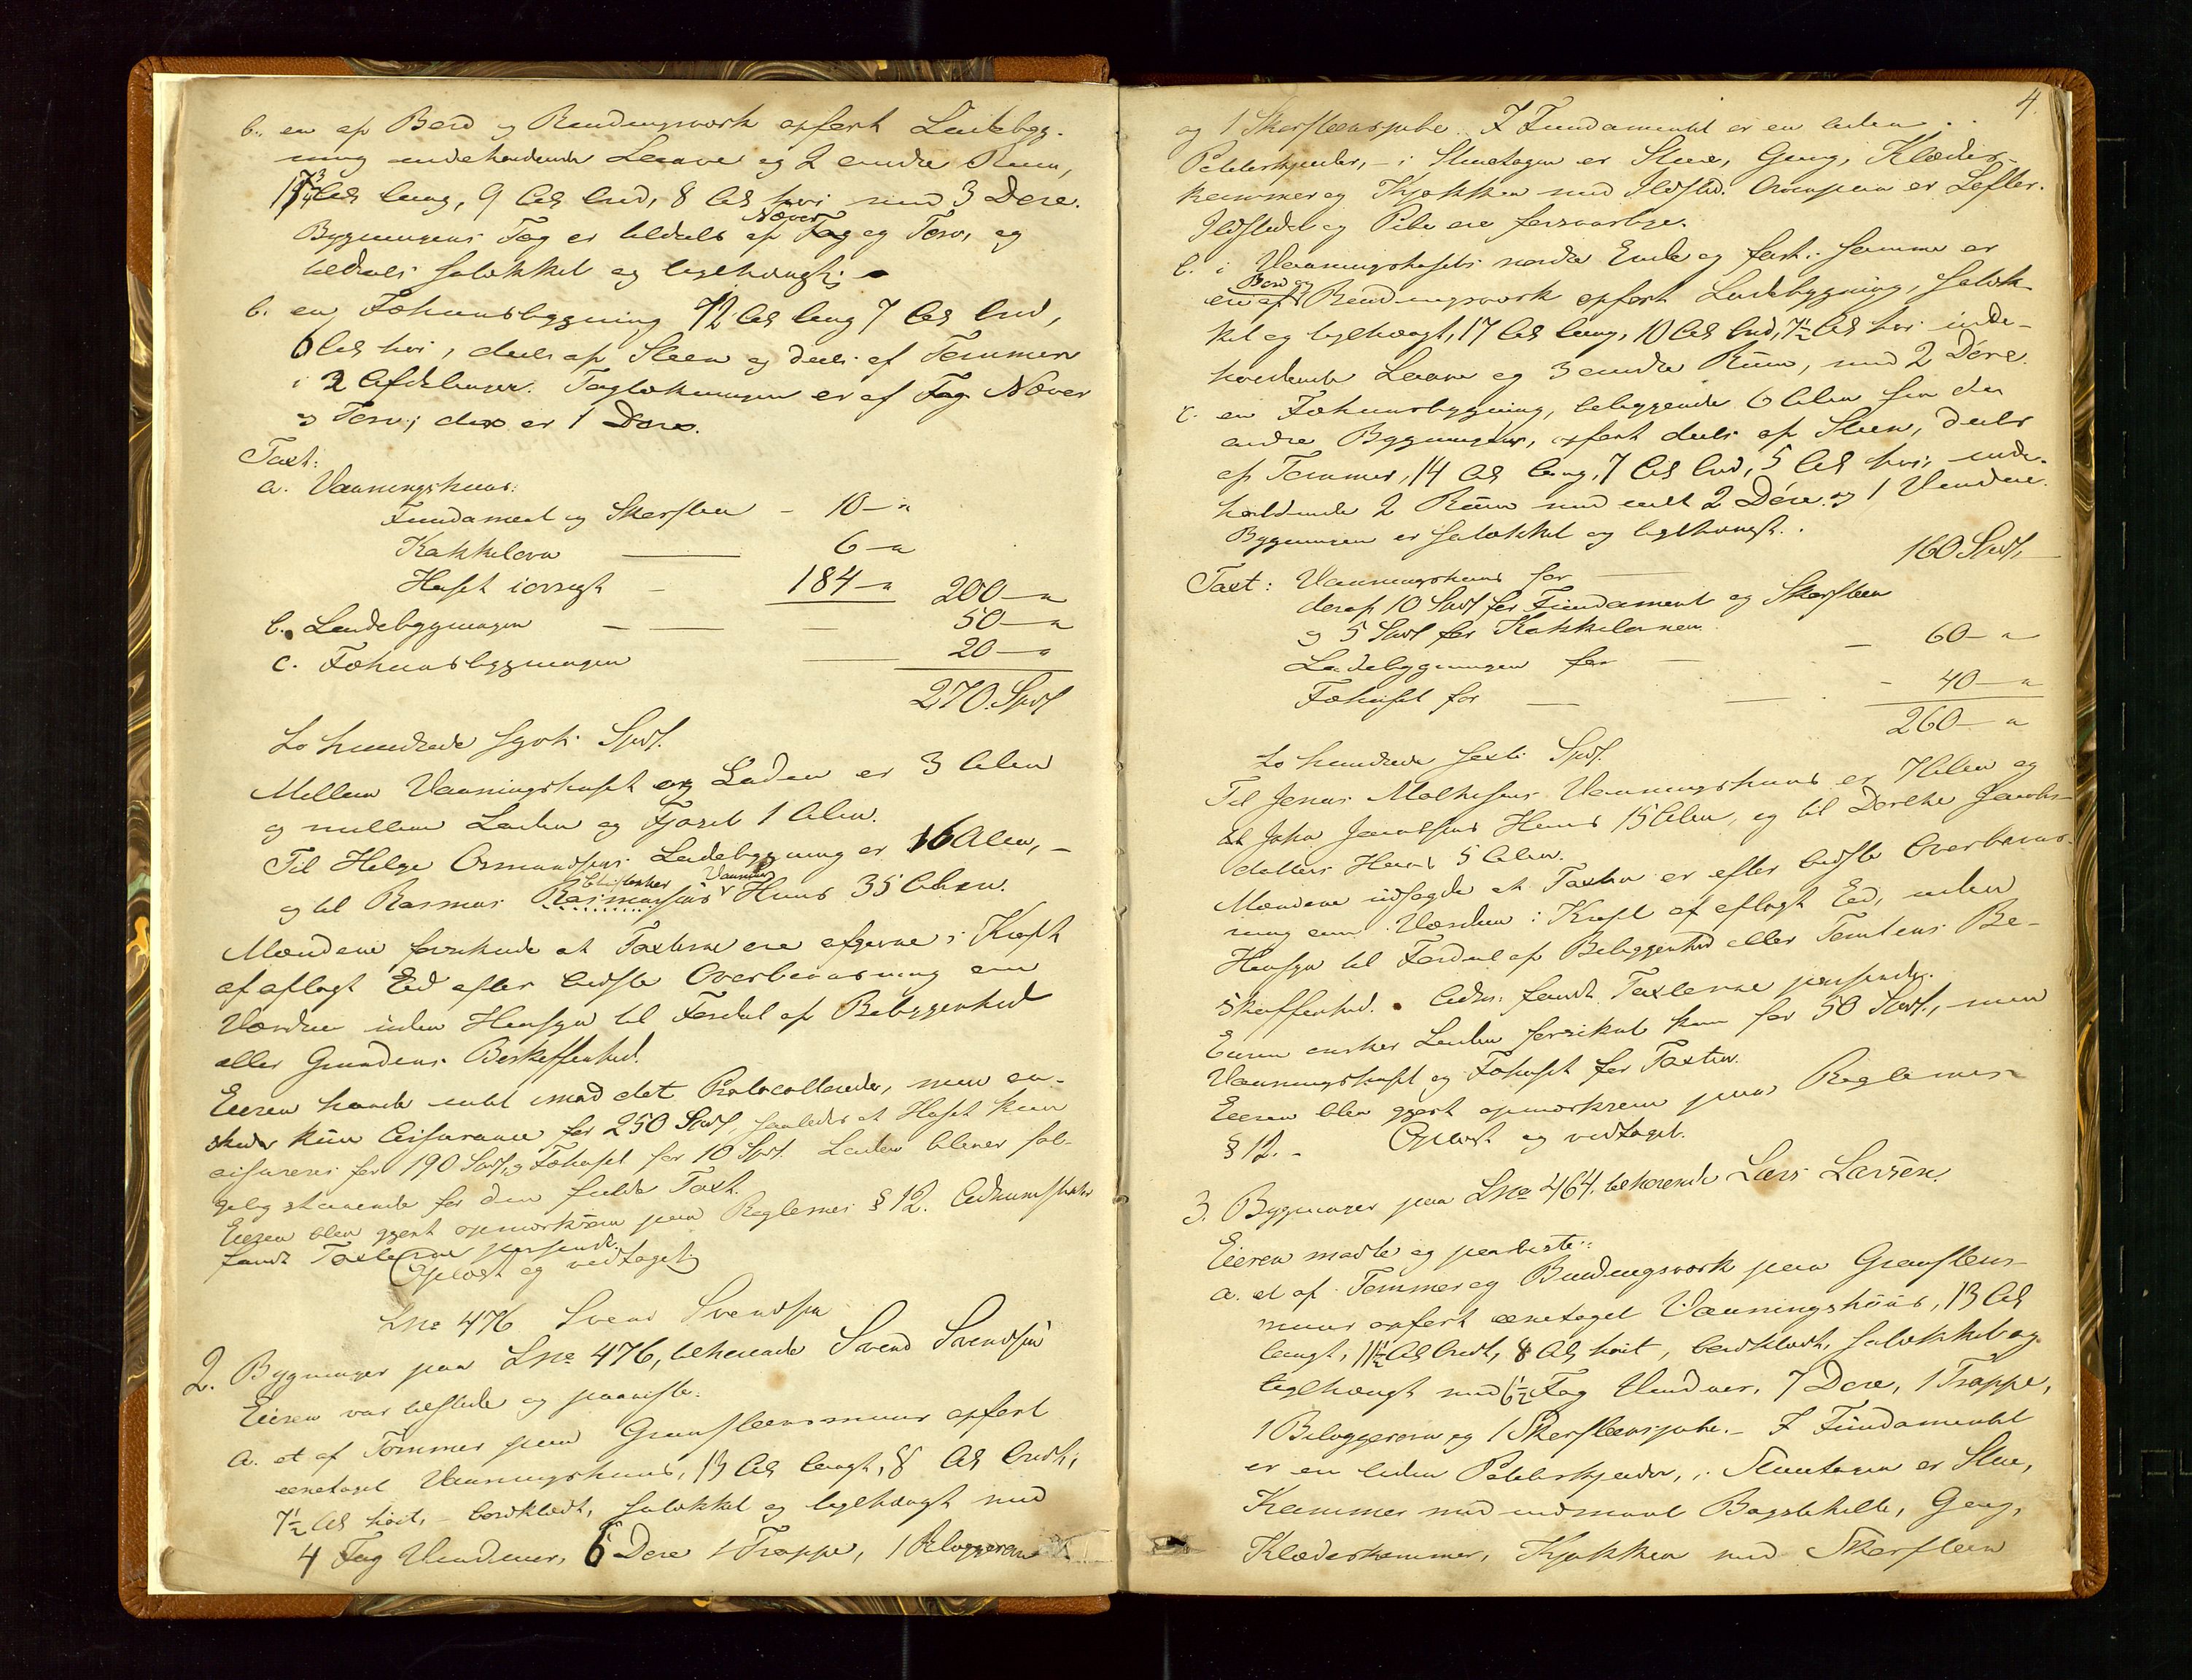 b. en af Bord og Bindingsværk opført Ladebyg-
ning indeholdende Laave og 2 andre Rum,
Al. lang, 9 Al. bred, 8 Al. høi med 3 Døre.
Bygningens Tag er tildels af Næver og Torv, og
tildels sulækket og teglhængt;
b. en Fæhuusbygning 12 Al. lang 7 Al. bred,
6 Al. høi, deels af Steen og deels af Tømmer
i 2 Afdelinger. Taglækningen er af Næver
og Torv; der er 1 Dør.
Taxt:
a. Vaaningshuus:
Fundament og Skorsteen - 10 - "
Kakkelovn — 6 - "
Huset iøvrigt - 184 - " 200 - "
b. Ladebygningen - — 50 - "
c. Fæhuusbygningen — 20 - "
270 Spd.
to hundrede sytti Spd.
Mellem Vaaningshuset og Laden er 3 Alen
og mellem Laden og Fjøset 1 Alen.
Til Helge Osmundsens Ladebygning er 16 Alen, -
og til Rasmus Rasmussens Vaanings Huus 35 Alen.
Mændene forsikrede at Taxterne ere afgivne i Kraft
af aflagt Eed efter bedste Overbeviisning om
Værdien uden Hensyn til Fordel af Beliggenhed
eller Grundens Beskaffenhed.
Eieren havde intet imod det Protocollerede, men øn-
skede kun Assurance for 250 Spd, saaledes at Huset kun
assureres for 190 Spd, og Fæhuset for 10 Spd. Laden bliver føl-
gelig staaende for den fulde Taxt.
Eieren blev gjort opmærksom paa Reglernes § 12. Administrator
fandt Taxterne passende.
Oplæst og vedtaget
Lno 476 Svend Svendsen
2. Bygninger paa Lno 476, tilhørende Svend Svendsen
Eieren var tilstede og paaviste:
a. et af Tømmer paa Graasteensmuur opført
eenetaget Vaaningshuus, 13 Al. langt, 8 Al. bredt,
7½ Al. høit, - bordklædt, sulækket og teglhængt med
4 Fag Vinduer, 6 Døre 1 Trappe, 1 Bilæggerovn
4.
og 1 Skorsteenspibe. I Fundamentet er en liden
Potetkjelder, - i Stuetagen er Stue, Gang, Klæde-
kammer og Kjøkken med Ildsted. Ovenpaa er Lofter.
Ildstedet og Pibe ere forsvarlige.
b. i Vaaningshusets nordre Ende og fast i samme er
en af Bord og Bindingsværk opført Ladebygning, sulæk-
ket og teglhængt, 17 Al. lang, 10 Al. bred, 7½ Al. høi inde-
holdende Laave og 3 andre Rum, med 2 Døre.
c. en Fæhuusbygning, beliggende 6 Alen fra den
andre Bygninger, opført deels af Steen, deels
af Tømmer, 14 Al. lang, 7 Al. bred, 5 Al. høi, inde-
holdende 2 Rum med 2 Døre og 1 Vindue.
Bygningen er sulækket og teglhængt.
Taxt: Vaaningshuus for — 160 Spd.
deraf 10 Spd for Fundament og Skorsteen
og 5 Spd for Kakkelovnen.
Ladebygningen for - - 60 - "
Fæhuset for — - 40 - "
260 - "
to hundrede sexti Spd.
Til Jonas Mathisens Vaaningshuus er 7 Alen og
til John Jacobsens Huus 15 Alen, og til Dorthe Jacobs-
datters Huus 5 Alen.
Mændene udsagde at Taxten er efter bedste Overbeviis-
ning om Værdien i Kraft af aflagt Eed, uden
Hensyn til Fordeel af Beliggenhed eller Tomtens Be-
skaffenhed. Adm. fandt Taxterne passende.
Eieren ønsker Laden forsikret kun for 50 Spd., men
Vaaningshuset og Fæhuset for Taxten.
Eieren blev gjort opmærksom paa Reglernes
§ 12. - Oplæst og vedtaget.
3. Bygninger paa Lno 464, tilhørende Lars Larsen.
Eieren mødte og paaviste:
a. et af Tømmer og Bindingsværk paa Graasteens-
muur opført eenetaget Vaaningshuus, 13 Al.
langt, 11½ Al. bredt, 8 Al. høit, bordklædt, sulækket og
teglhængt med 6½ Fag Vinduer, 7 Døre, 1 Trappe,
1 Bilæggerovn og 1 Skorsteenspibe. - I Fundamentet
er en liden Potetkjelder, i Stuetagen er Stue,
Kammer med indmuret Bagstehelle, Gang,
Klædekammer, Kjøkken med Skorsteen